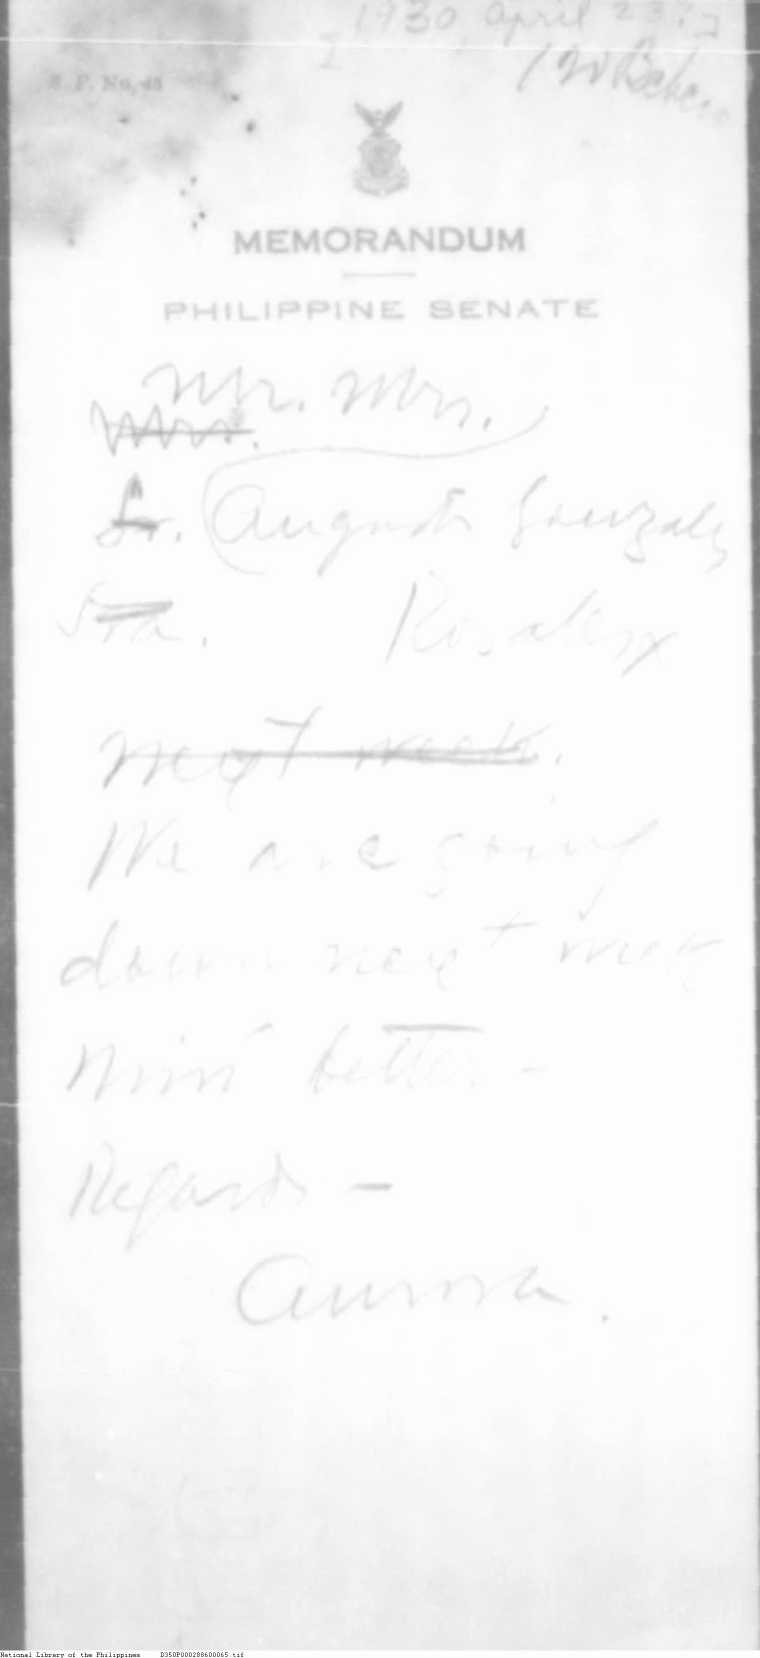 1930 April 23
I
S. P. No. 48
MEMORANDUM
PHILIPPINE SENATE
Mr. Mrs.
Mrs.
Sr. Augusto Gonzalez
Sra.
next week.
We are going
down next week
Nini better -
Regards -
Aurora.
National Library of the Philippines D350P000288600065.tif